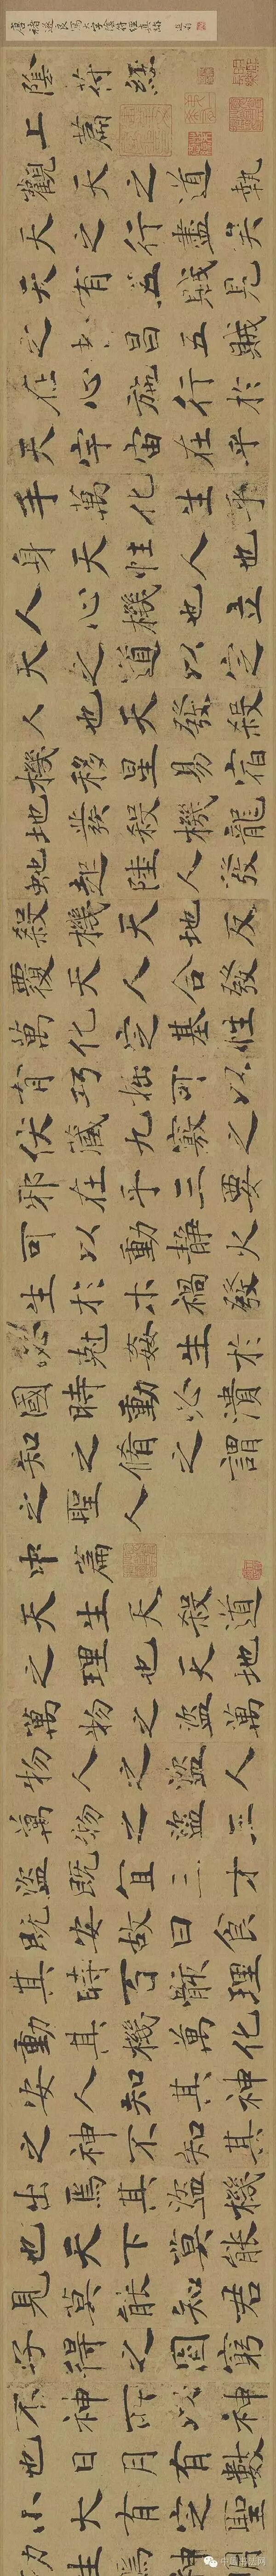 唐褚遂良寫大字陰符經真跡
陰符經
上篇
觀天之道執
天之行盡矣
天有五賊見
之者昌五賊
在心施行於
天宇宙在乎
手萬化生乎
身天性人也
人心機也立
天之道以定
人也天發殺
機移星易宿
地發殺機龍
蛇起陸人發
殺機天地反
覆天人合發
萬化定基性
有巧拙可以
伏藏九竅之
邪在乎三要
可以動靜火
生於木禍發
必剋姦生於
國時動必潰
知之脩之謂
之聖人
中篇
天生天殺道
之理也天地
萬物之盜萬
物人之盜人
萬物之盜三
盜既宜三才
既安故曰食
其時百骸理
動其機萬化
安人知其神
之神不知其
出焉其盜機
也天下莫能
見莫能知君
子得之固窮
不神所以神
也日月有數
小大有定聖
功生焉神明